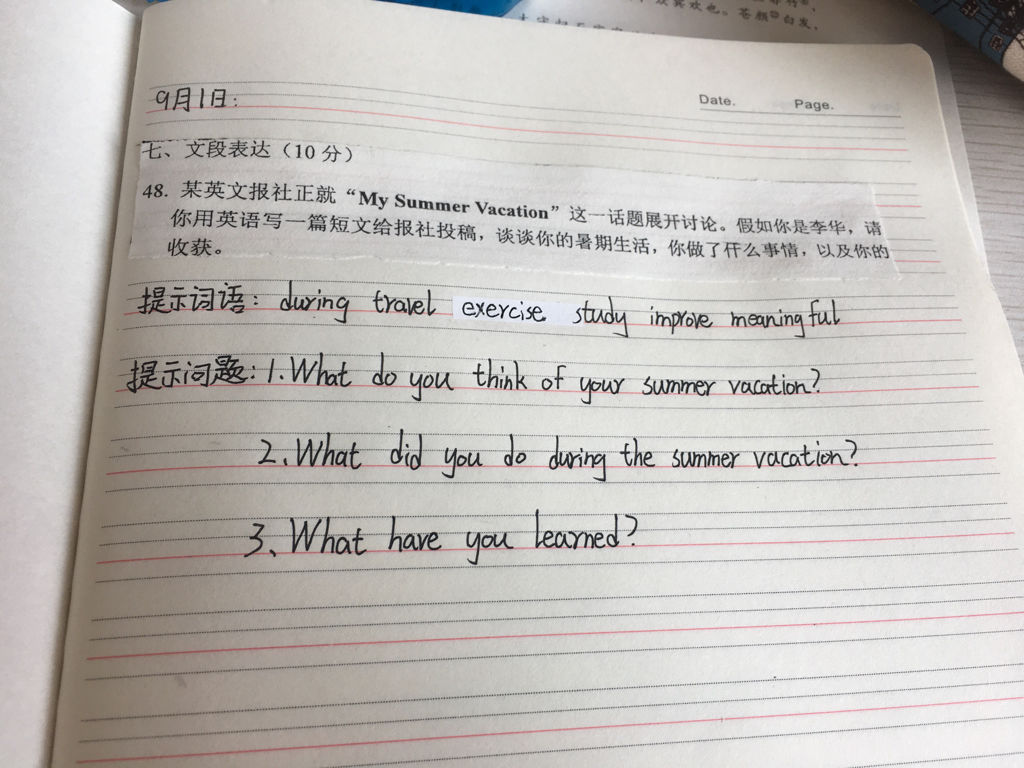 欢也。苍颜白发，
9月1日：
Date. Page.
七、文段表达（10 分）
48. 某英文报社正就“My Summer Vacation”这一话题展开讨论。假如你是李华，请
你用英语写一篇短文给报社投稿，谈谈你的暑期生活，你做了什么事情，以及你的
收获。
提示词语：during travel exercise study improve meaningful
提示问题：1.What do you think of your summer vacation?
2、What did you do during the summer vacation?
3、What have you learned?